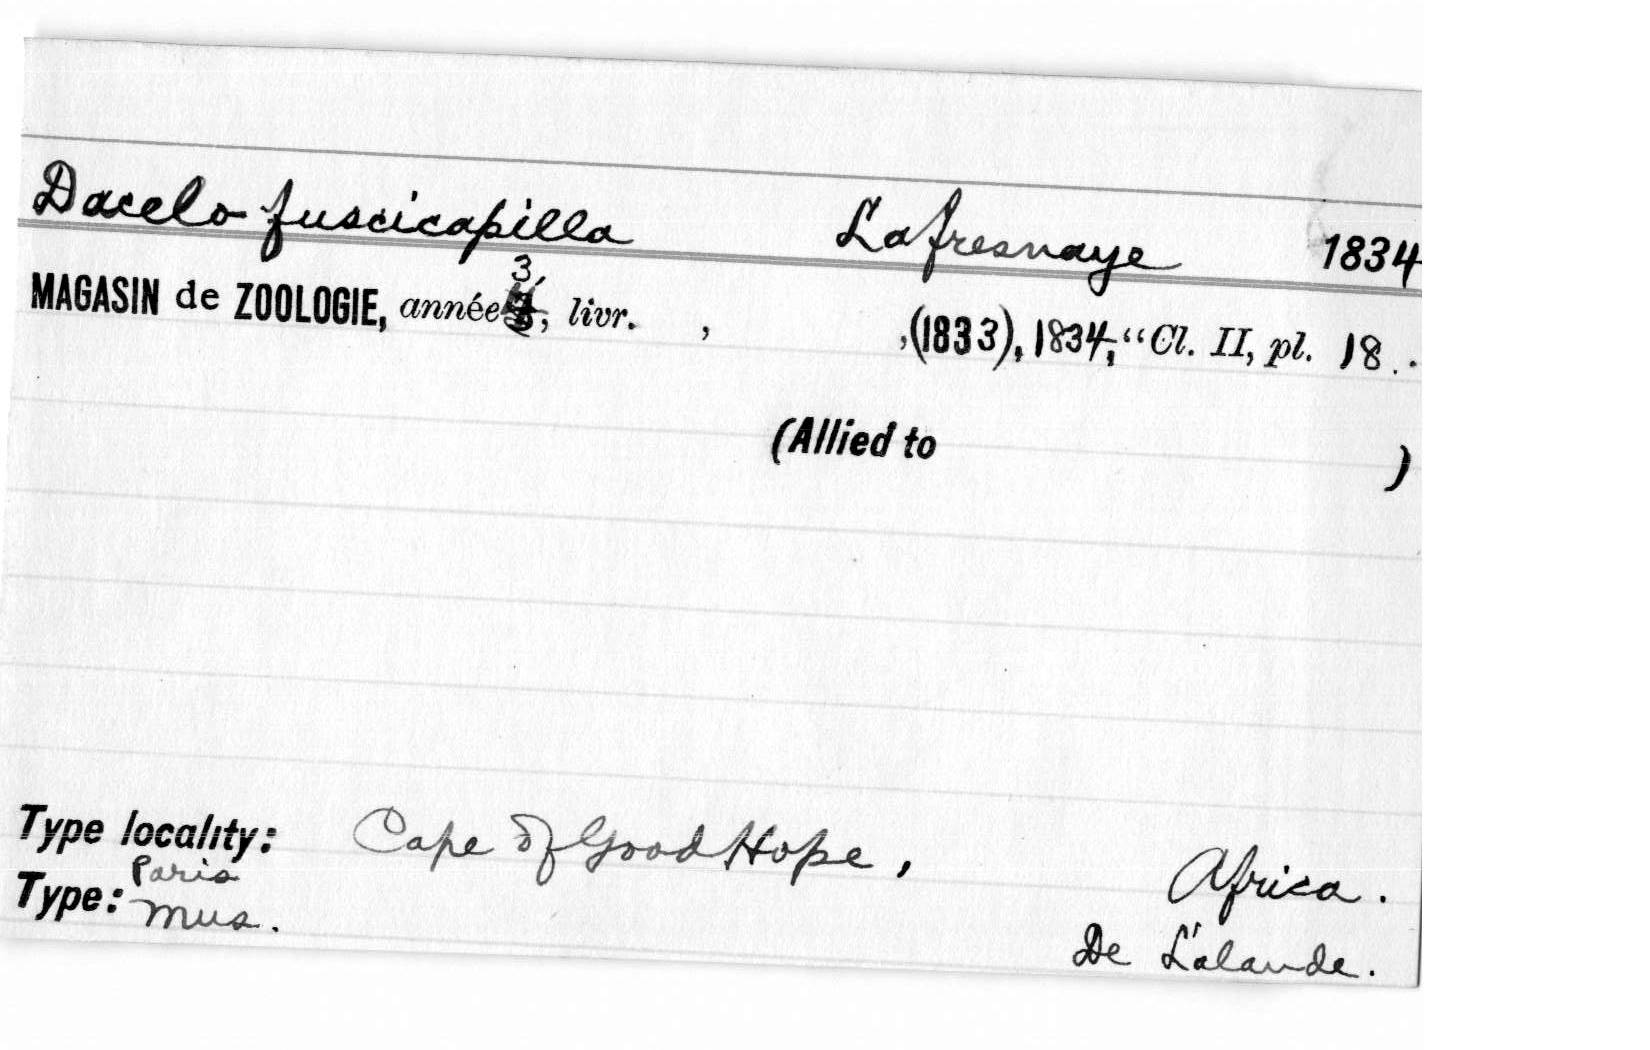 Dacelo fuscicapilla Lafresnaye 1834
MAGASIN de ZOOLOGIE, année 3, livr. , ,(1833), 1834, “Cl. II, pl. 18..
(Allied to )
Type locality: Cape of Good Hope, Africa.
Type: Paris Mus. De L'alande.